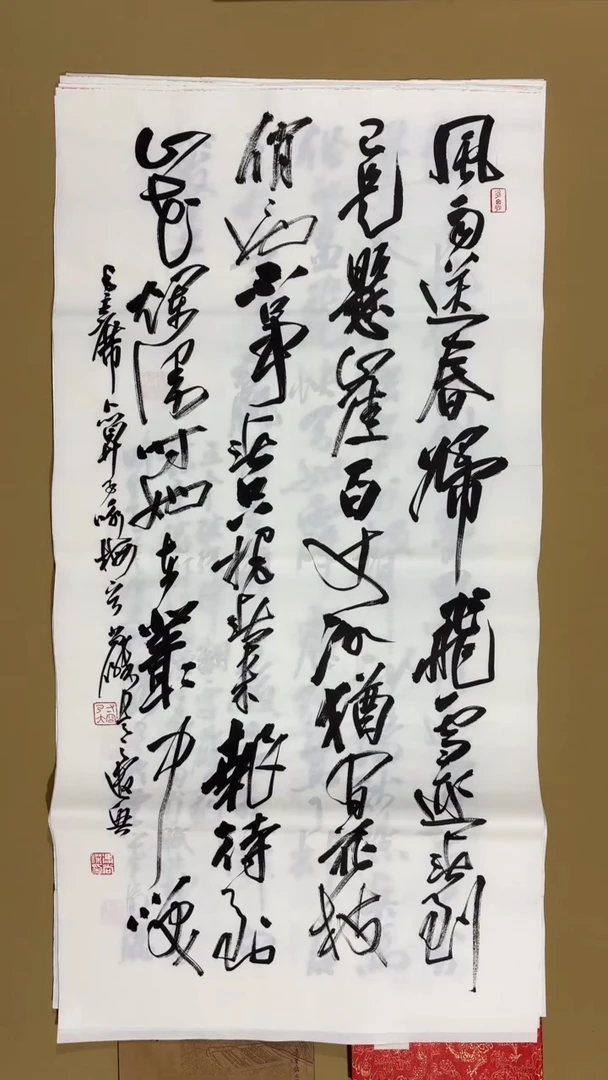 風雨送春歸飛雪迎春到
已是懸崖百丈冰猶有花枝
俏〻也不爭春只把春來報待到
山花爛漫時她在叢中笑
毛主席卜算子咏梅